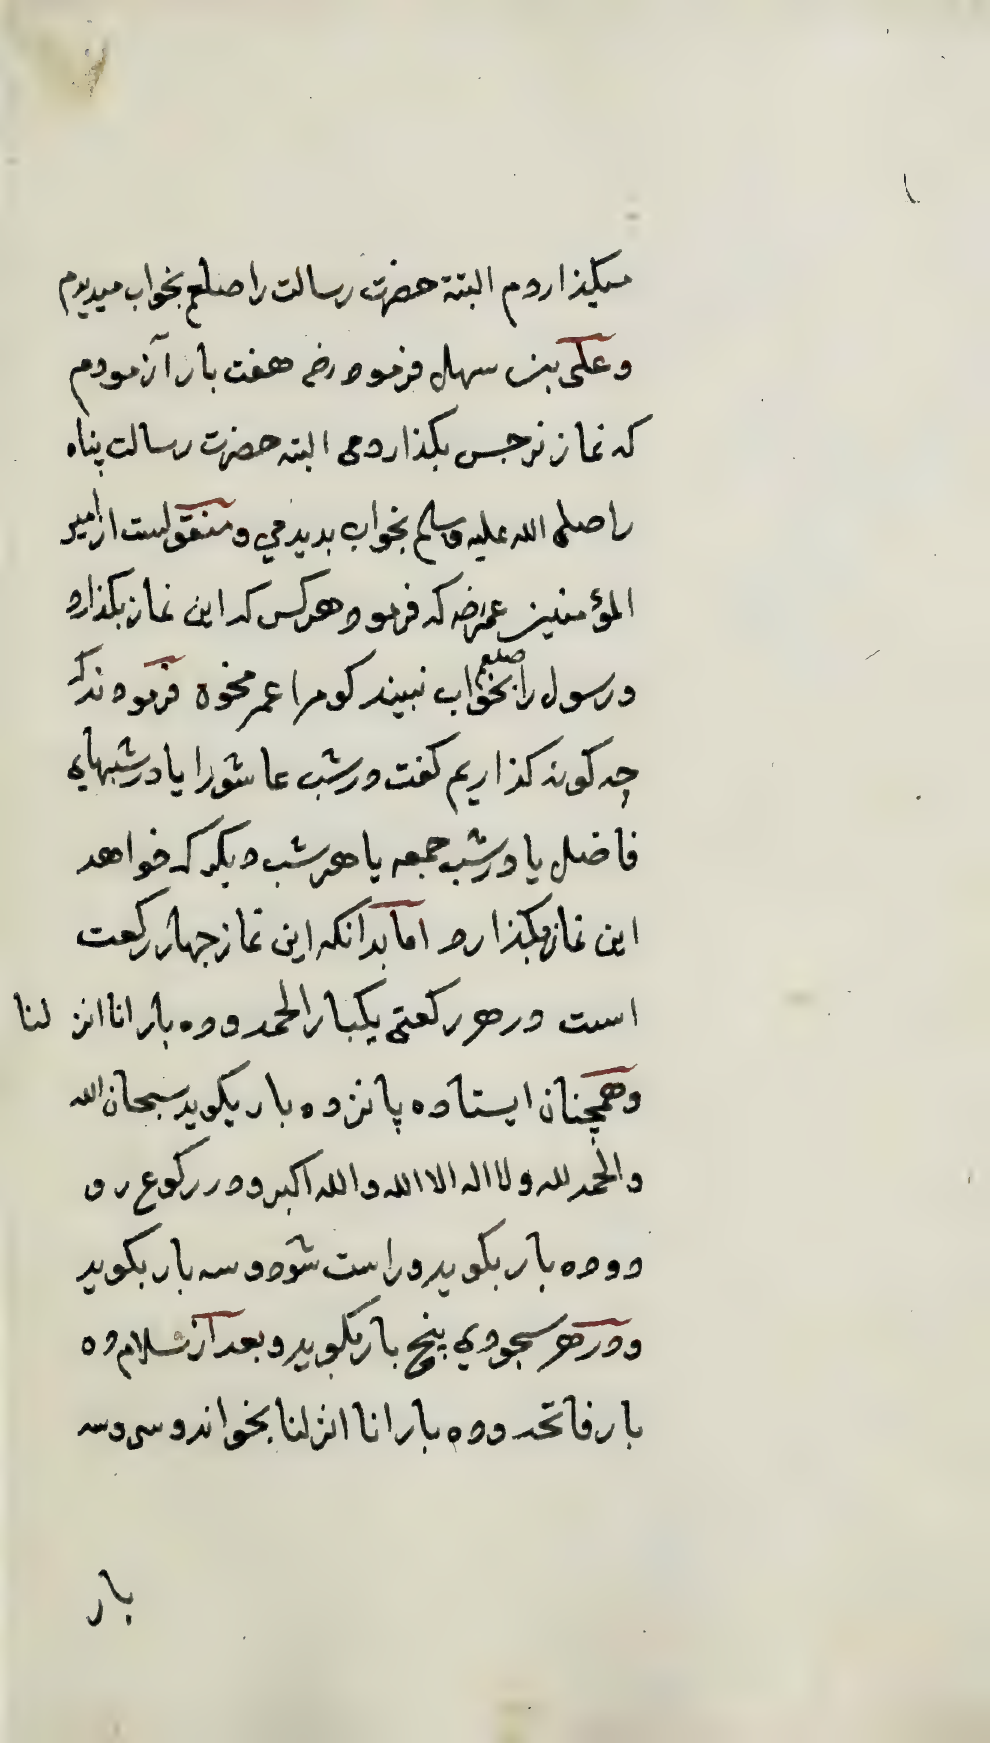 میکذاردم البتة حضرت رسالت را صلعم بخواب میدیدم
و علی بن سهل فرمود رض هفت بار آزمودم
که نماز نرجس بکذاردمی البته حضرت رسالت پناه
را صلی الله علیه وسلم بخواب بدیدمی و منقولست از امیر
المؤمنین عمر رضه که فرمود هرکس که این نماز بکذارد
و رسول را صلعم بخواب نبیند کو مرا عمر مخوان فرمودند که
چه کونه کذاریم کفت در شب عاشورا یا در شبهای
فاضل یا در شب جمعه یا هر شب دیکر که خواهد
این نماز بکذارد اما بدانکه این نماز چهار رکعت
است در هر رکعتی یکبار الحمد و ده بار انا انز لنا
و همچنان ایستاده پانزده بار بکوید سبحان الله
والحمد لله ولا اله الا الله والله اکبر و در رکوع رو
د و ده بار بکوید و راست شود و سه بار بکوید
و در هر سجودی پنج بار بکوید و بعد از سلام ده
بار فاتحه و ده بار انا انزلنا بخواند و سی و سه
بار